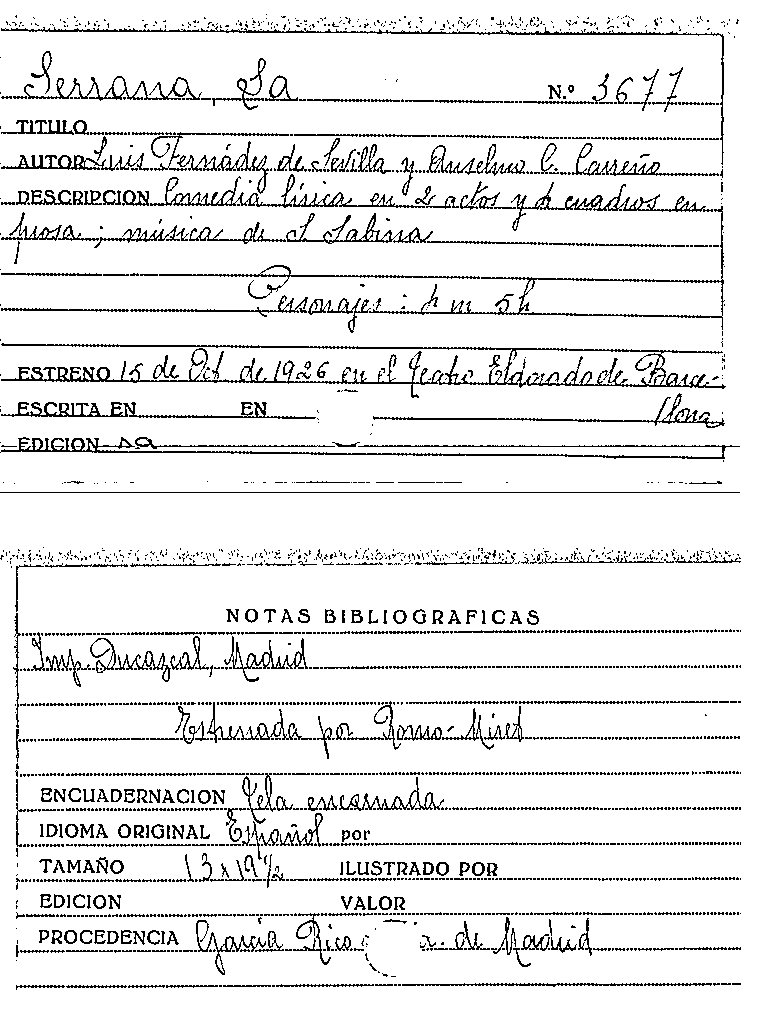 Serrana, La N.º 3677
TITULO
AUTOR Luis Fernádez de Sevilla y Anselmo C. Carreño
DESCRIPCION Comedia lírica en 2 actos y 4 cuadros en
prosa; música de S Sabina
Personajes: 4 m 5h
ESTRENO 15 de Oct de 1926 en el Teatro Eldorado de Barce-
lona
ESCRITA EN EN
EDICION
NOTAS BIBLIOGRAFICAS
Imp. Ducazcal, Madrid
Estrenada por Romo-Miret
ENCUADERNACION Tela encarnada
IDIOMA ORIGINAL Español por
TAMAÑO 13 x 19 1/2 ILUSTRADO POR
EDICION VALOR
PROCEDENCIA García Rico a. de Madrid